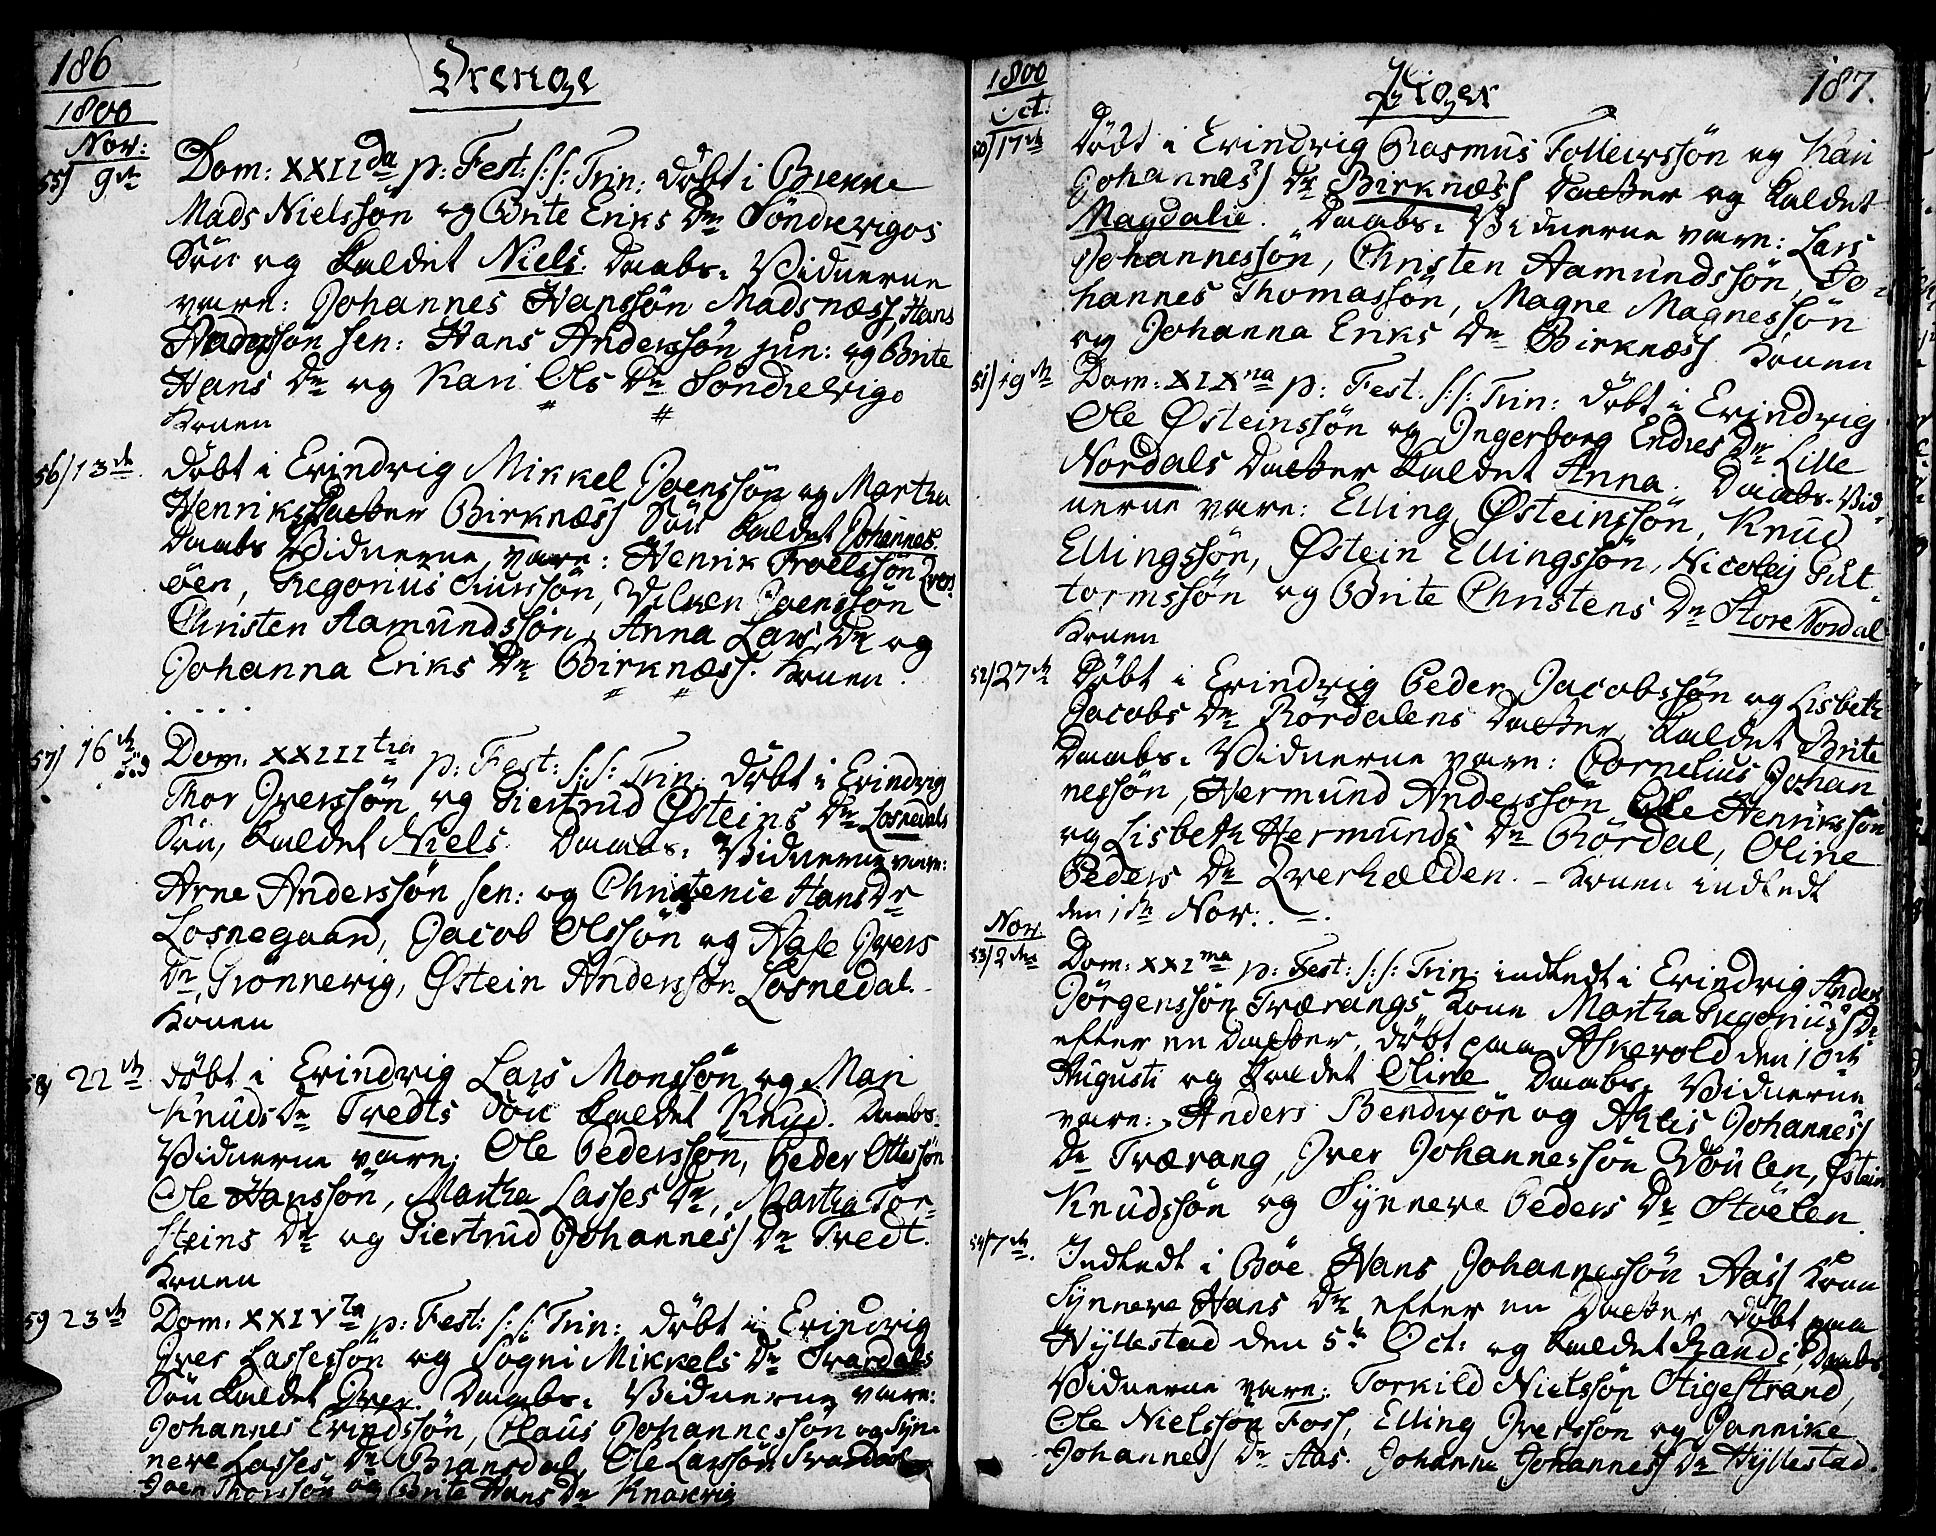 186
Drenge
1800
Nov:
55) 9de Dom: XXIIda p: Fest: S: S: Trin: döbt i Brekke
Mads Nielssön og Brite Eriks Dr Söndrevigos
Sön og kaldet Niels. Daabs-Vidnerne
vare: Johannes Hanssön Madsnæss, Hans
Anderssön sen: Hans Anderssön jun: og Brite
Hans Dr og Kari Ols Dr Söndrevigo
Konen
56) 13de döbt i Evindvig Mikkel Joenssön og Martha
Henriks Datter Birknæss Sön kaldet Johannes.
Daabs Vidnerne vare: Henrik Troelssön
öen, Gregorius Siurssön, Villken Joenssön
Christen Aamundssön, Anna Lars Dr og
Johanna Eriks Dr Birknæss. Konen
57) 16de Dom. XXIIItia p: Fest: S: S: Trin: döbt i Evindvig
Thor Iverssön og Giertrud Østeins Dr Losnedals
Sön, kaldet Niels. Daabs-Vidnerne vare:
Arne Anderssön sen: og Christenie Hans Dr
Losnegaard, Jacob Olssön og Aase Ivers
Dr Grönnevig, Østein Anderssön Losnedal.
Konen
58) 22de döbt i Evindvig Lars Monssön og Mari
Knuds Dr Tredts Sön kaldet Knud. Daabs-
Vidnerne vare: Ole Pederssön, Peder Ottessön
Ole Hanssön, Martha Lasses Dr, Martha Tor-
steins Dr og Giertrud Johanness Dr Tredt.
Konen
59 23de Dom: XXIVta p: Fest: S: S: Trin: döbt i Evindvig
Iver Lassessön og Sogni Mikkels Dr Svardals
Sön kaldet Iver. Daabs-Vidnerne vare:
Johannes Erindssön, Claus Johannessön og Syn-
neve Lasses Dr Brandsdal, Ole Larssön Svardal
Joen Thorssön og Brite Hans Dr Knarvig
1800
Piger
187.
Oct:
50) 17de Döbt i Evindvig Rasmus Tolleivssön og Kari
Johanness Dr Birknæss Datter og kaldet
Magdalie. Daabs-Vidnerne vare: Lars
Johannessön, Christen Aamundssön, Jo-
hannes Thomassön, Magne Magnessön
og Johanna Eriks Dr Birknæss Konen
51) 19de Dom: XIXna p: Fest: S: S: Trin: döbt i Evindvig
Ole Østeinssön og Ingerborg Endres Dr Lille
Nordals Datter kaldet Anna. Daabs-Vid-
nerne vare: Elling Østeinssön, Knud
Ellingssön, Østein Ellingssön, Nicolay Gut-
tormssön og Brite Christens Dr Store Nordal
Konen
52) 27de Döbt i Evindvig Peder Jacobssön og Lisbeth
Jacobs Dr Rördalens Datter, kaldet Brite
Daabs-Vidnerne vare: Cornelius Johan
nessön, Hermund Anderssön Ole Henrikssön
og Lisbeth Hermunds Dr Rördal, Oline
Peders Dr Qverhælden. - Konen indledt
den 1de Nov:
Nov
53) 2den Dom: XXIma p: Fest: S: S: Trin: indledt i Evindvig Anders
Jörgenssön Trærangs Kone Martha Gregoriuss Dr
efter en Datter, döbt paa Askevold den 10de
Augusti og kaldet Oline Daabs-Vidnerne
vare: Anders Bendixön og Ahlis Johanness
Dr Trærang, Iver Johannessön Döulen, Østein
Knudssön og Synneve Peders Dr Stöelen.
54) 7de. Indledt i Böe Hans Johannessön Aass Kone
Synneve Hans Dr efter en Datter döbt paa
Hyllestad den 5te Oct: og kaldet Randi, Daabs-
Vidnerne vare: Torkild Nielssön Stigestrand,
Ole Nielssön Foss, Elling Iverssön og Jannike
Johannes Dr Aas. Johanne Johanness Dr Hyllestad.